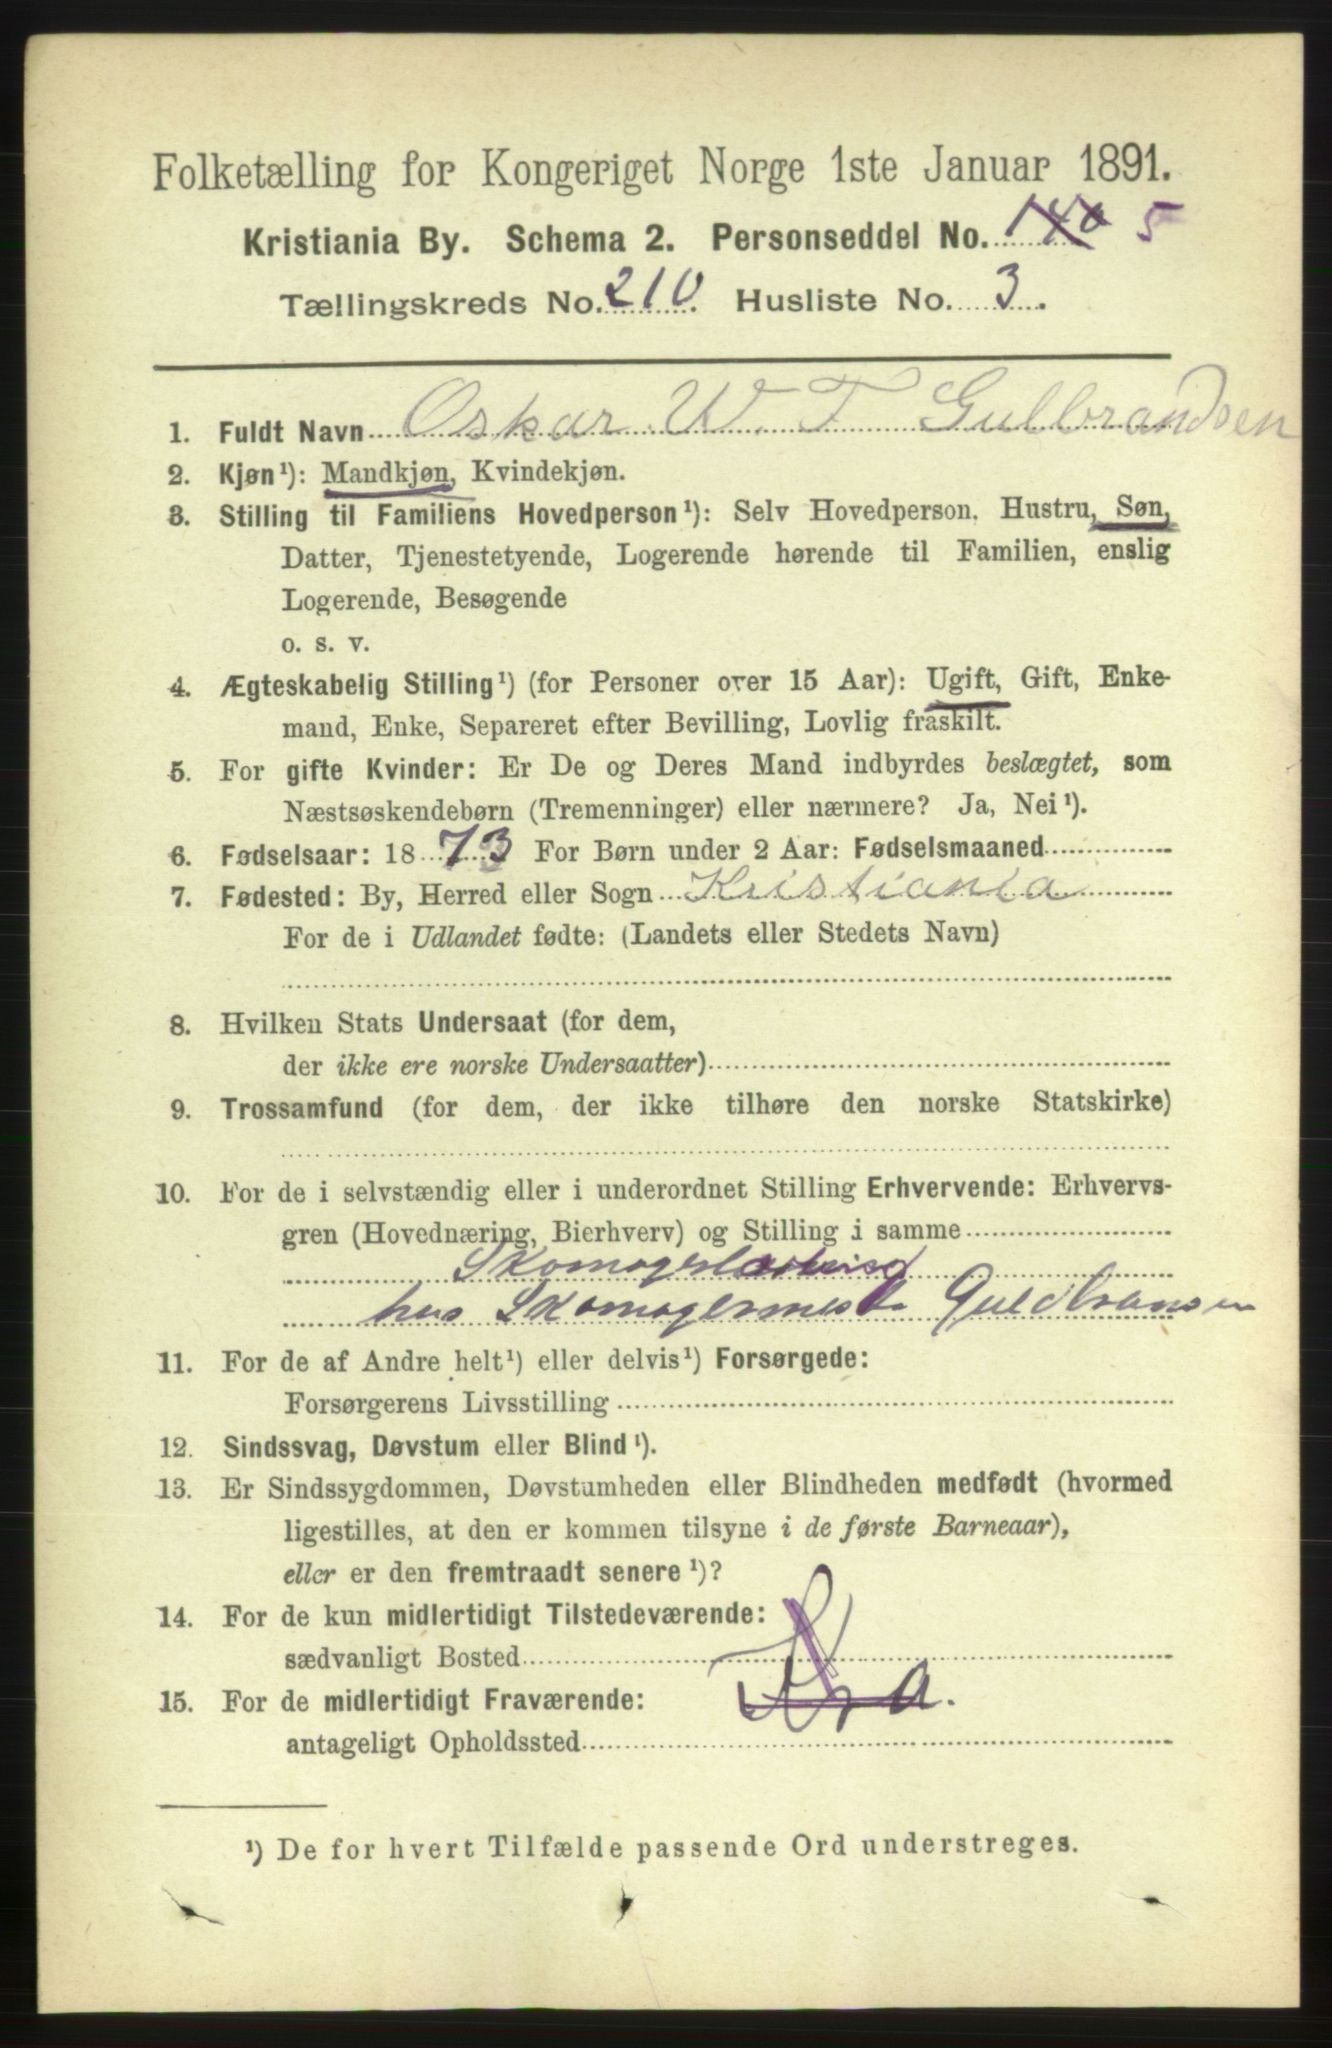 Folketælling for Kongeriget Norge 1ste Januar 1891.
Kristiania By. Schema 2. Personseddel No. 140 5
Tællingskreds No. 210. Husliste No. 3.
1. Fuldt Navn Oskar W. F Gulbrandsen
2. Kjøn¹): Mandkjøn, Kvindekjøn.
3. Stilling til Familiens Hovedperson¹): Selv Hovedperson, Hustru, Søn,
Datter, Tjenestetyende, Logerende hørende til Familien, enslig
Logerende, Besøgende
o. s. v.
4. Ægteskabelig Stilling¹) (for Personer over 15 Aar): Ugift, Gift, Enke-
mand, Enke, Separeret efter Bevilling, Lovlig fraskilt.
5. For gifte Kvinder: Er De og Deres Mand indbyrdes beslægtet, som
Næstsøskendebørn (Tremenninger) eller nærmere? Ja, Nei¹).
6. Fødselsaar: 1873 For Børn under 2 Aar: Fødselsmaaned
7. Fødested: By, Herred eller Sogn Kristiania
For de i Udlandet fødte: (Landets eller Stedets Navn)
8. Hvilken Stats Undersaat (for dem,
der ikke ere norske Undersaatter)
9. Trossamfund (for dem, der ikke tilhøre den norske Statskirke)
10. For de i selvstændig eller i underordnet Stilling Erhvervende: Erhvervs-
gren (Hovednæring, Bierhverv) og Stilling i samme
hus Skomagermest. Guldbransen
11. For de af Andre helt¹) eller delvis¹) Forsørgede:
Forsørgerens Livsstilling
12. Sindssvag, Døvstum eller Blind¹).
13. Er Sindssygdommen, Døvstumheden eller Blindheden medfødt (hvormed
ligestilles, at den er kommen tilsyne i de første Barneaar),
eller er den fremtraadt senere¹)?
14. For de kun midlertidigt Tilstedeværende:
sædvanligt Bosted
15. For de midlertidigt Fraværende: Kra.
antageligt Opholdssted
¹) De for hvert Tilfælde passende Ord understreges.